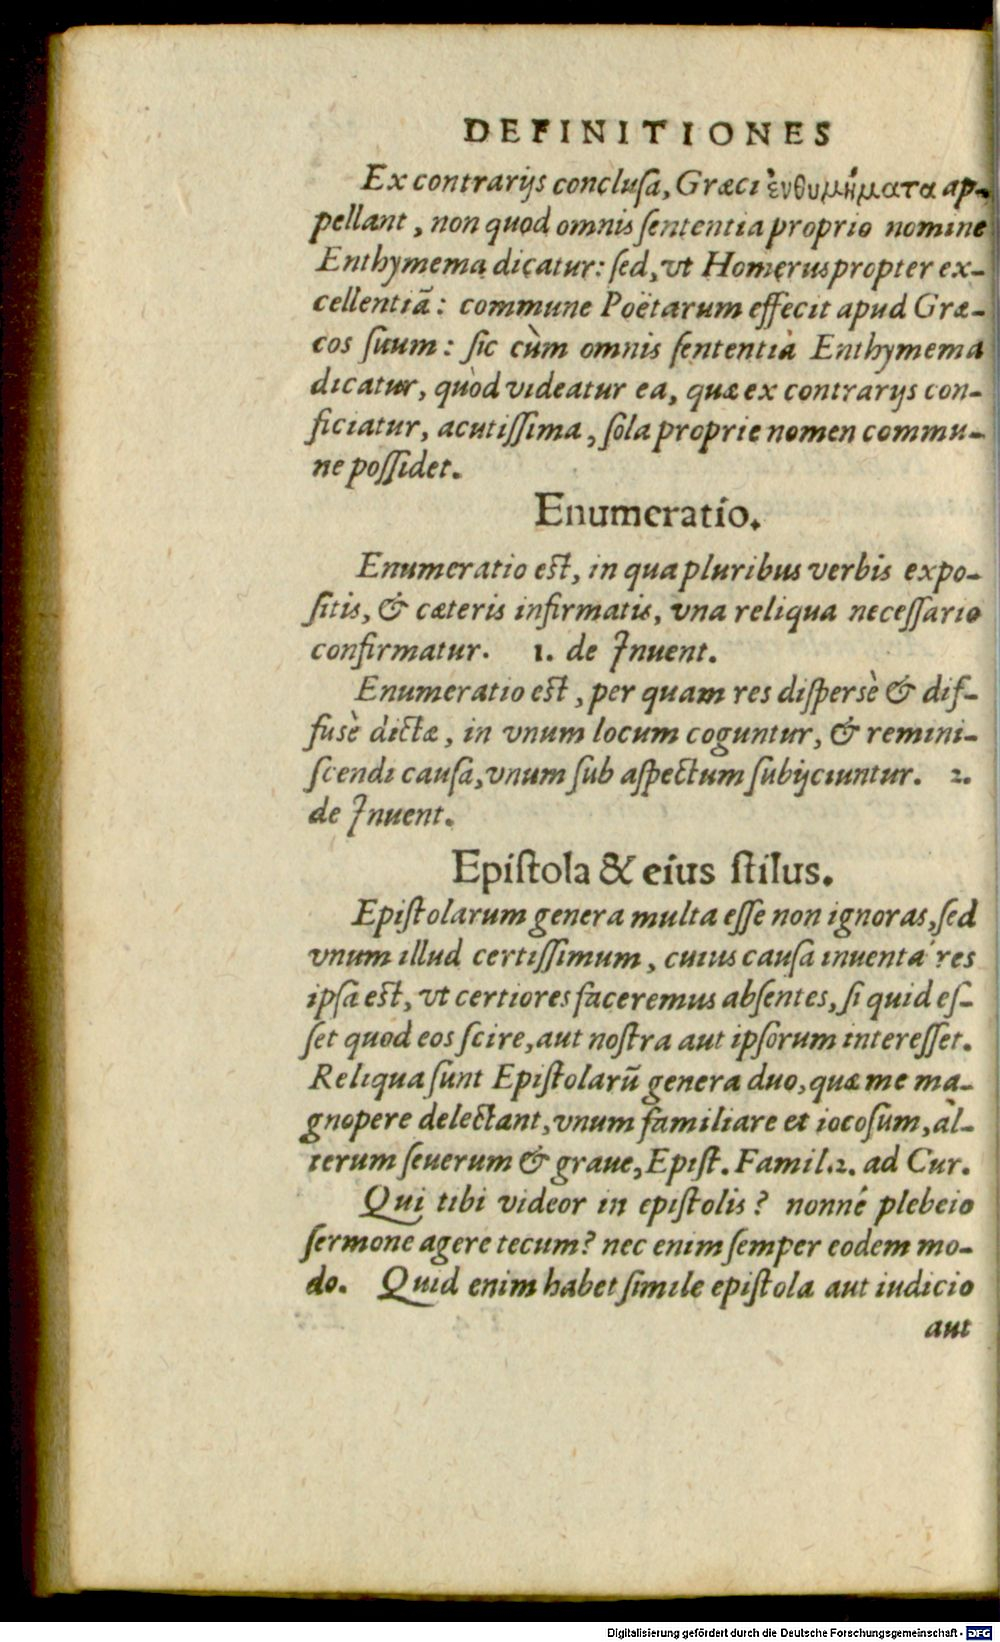 DEFINITIONES
Ex contrarijs conclusa, Græci ἐνθυμήματα ap-
pellant, non quod omnis sententia proprio nomine
Enthymema dicatur: sed, vt Homerus propter ex-
cellentiã: commune Poëtarum effecit apud Græ-
cos suum: sic cùm omnis sententia Enthymema
dicatur, quòd videatur ea, quæ ex contrarijs con-
ficiatur, acutissima, sola proprie nomen commu-
ne possidet.
Enumeratio.
Enumeratio est, in qua pluribus verbis expo-
sitis, & cæteris infirmatis, vna reliqua necessario
confirmatur. 1. de Inuent.
Enumeratio est, per quam res dispersè & dif-
fusè dictæ, in vnum locum coguntur, & remini-
scendi causa, vnum sub aspectum subijciuntur. 2.
de Inuent.
Epistola & eius stilus.
Epistolarum genera multa esse non ignoras, sed
vnum illud certissimum, cuius causa inuenta res
ipsa est, vt certiores faceremus absentes, si quid es-
set quod eos scire, aut nostra aut ipsorum interesset.
Reliqua sunt Epistolarũ genera duo, quæ me ma-
gnopere delectant, vnum familiare et iocosum, al-
terum seuerum & graue, Epist. Famil. 2. ad Cur.
Qui tibi videor in epistolis? nonné plebeio
sermone agere tecum? nec enim semper eodem mo-
do. Quid enim habet simile epistola aut iudicio
aut
Digitalisierung gefördert durch die Deutsche Forschungsgemeinschaft - DFG